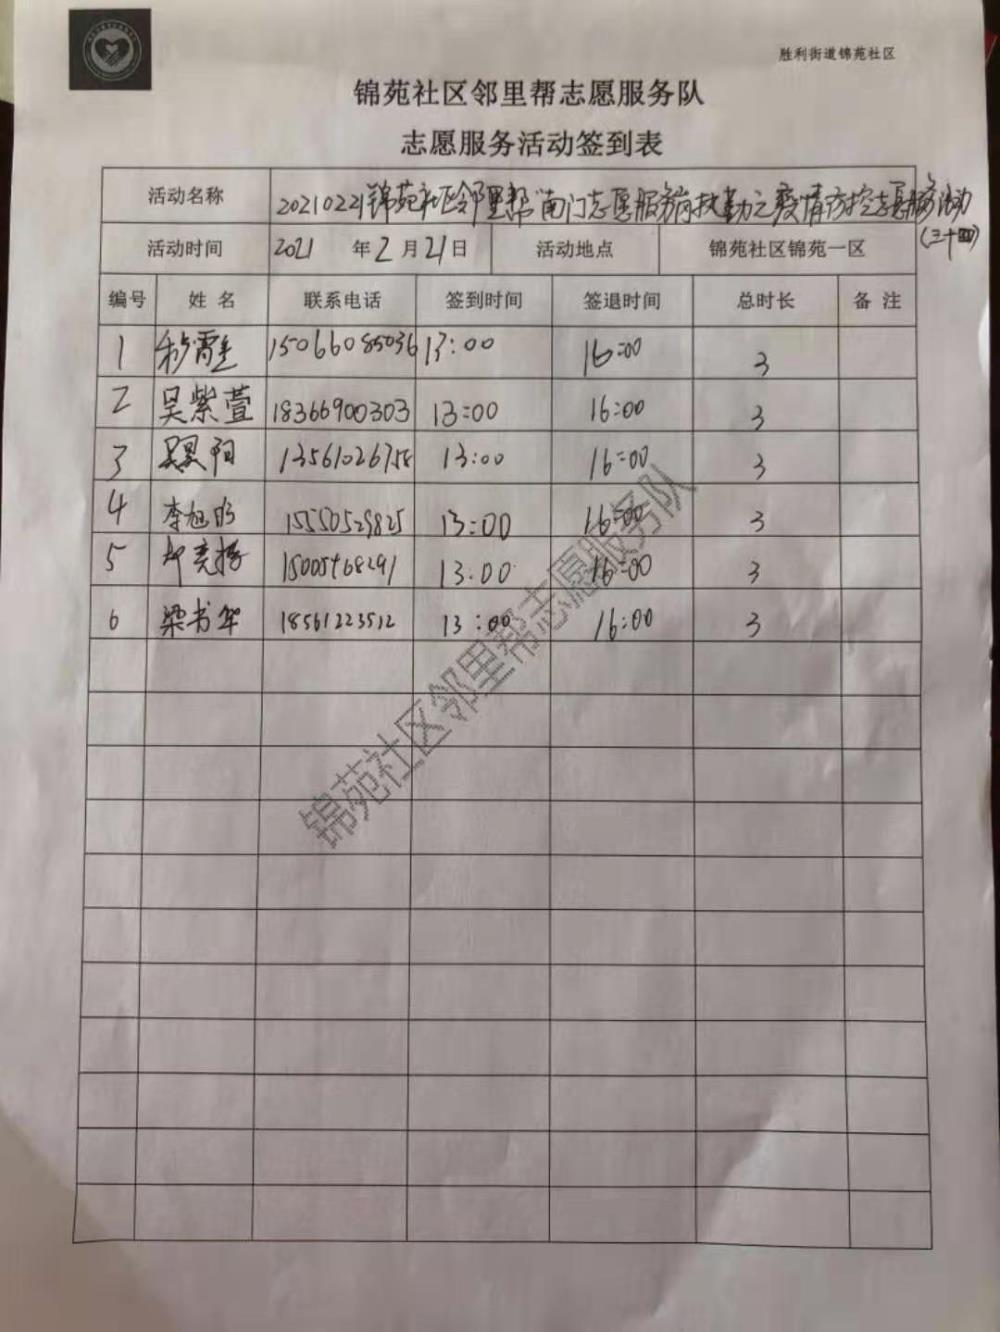 胜利街道锦苑社区
锦苑社区邻里帮志愿服务队
志愿服务活动签到表
活动名称 20210221锦苑社区邻里帮"南门志愿服务岗执勤之疫情防控志愿服务活动
(三十四)
活动时间 2021 年 2 月 21 日 活动地点 锦苑社区锦苑一区
编号 姓 名 联系电话 签到时间 签退时间 总时长 备 注
1 15066085036 13:00 16:00 3
2 吴紫萱 18366900303 13:00 16:00 3
3 13561026758 13:00 16:00 3
4 李旭 15550529825 13:00 16:00 3
5 15005468291 13:00 16:00 3
6 梁书华 18561223512 13:00 16:00 3
锦苑社区邻里帮志愿服务队